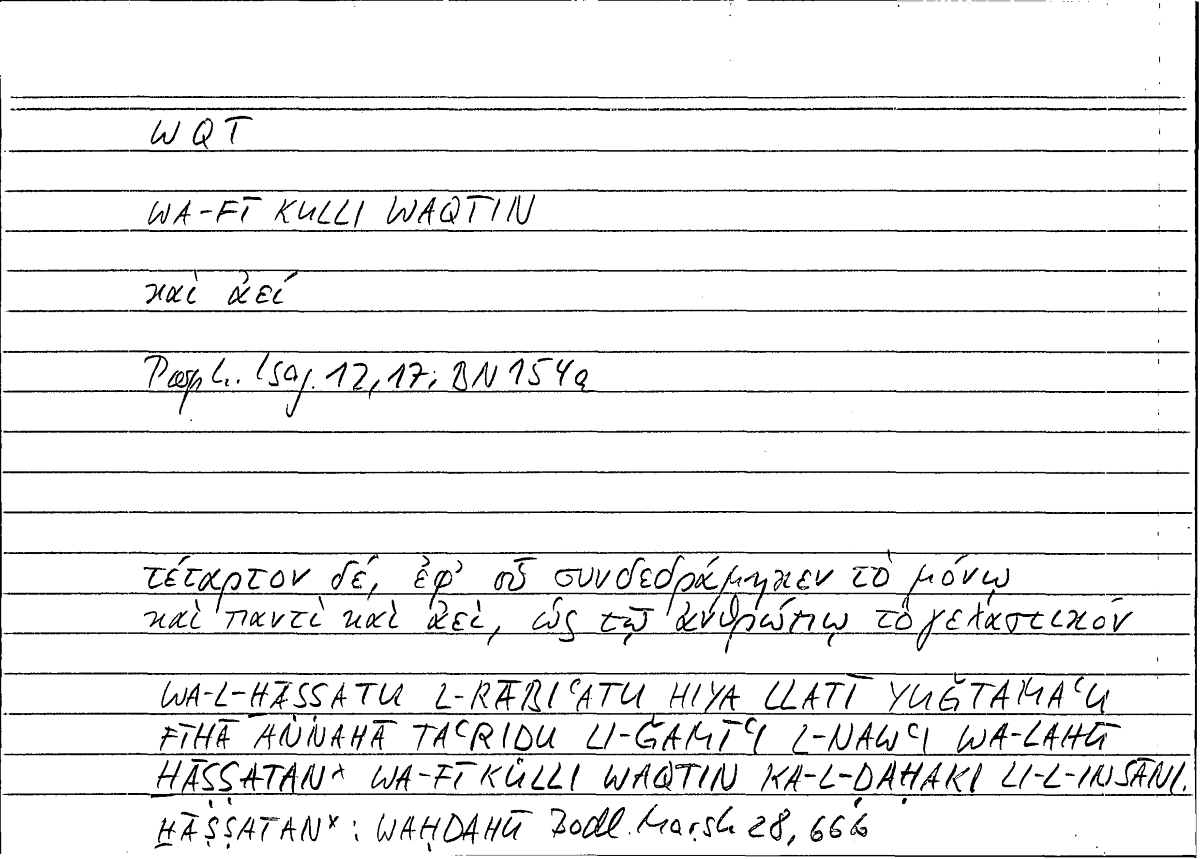 WQT
WA-FĪ KULLI WAQTIN
καὶ ἀεί
Porph. Isag. 12,17; BN 154a
τέταρτον δέ, ἐφ’ οὗ συνδεδράμηκεν τὸ μόνῳ
καὶ παντὶ καὶ ἀεὶ, ὡς τῷ ἀνθρώπῳ τὸ γελαστικόν
WA-L-ḪĀṢṢATU L-RĀBIʿATU HIYA LLATĪ YUǦTAMAʿU
FĪHĀ ANNAHĀ TAʿRIḌU LI-ǦAMĪʿI L-NAWʿI WA-LAHŪ
ḪĀṢṢATAN* WA-FĪ KULLI WAQTIN KA-L-ḌAḤAKI LI-L-INSĀNI.
ḪĀṢṢATAN*: WAḤDAHŪ Bodl. Marsh 28, 66b